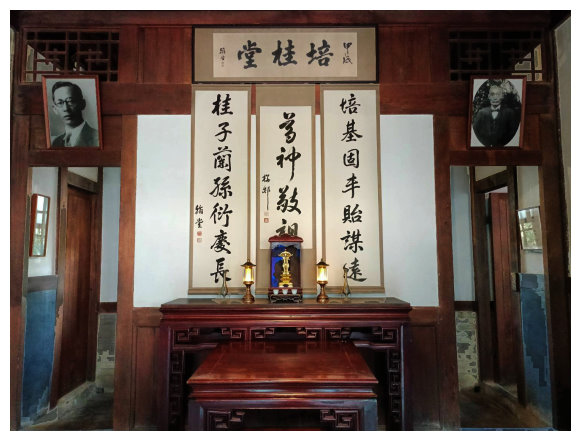 甲戌
培桂堂
培基固本貽謀遠
尊神敬祖
桂子蘭孫衍慶長